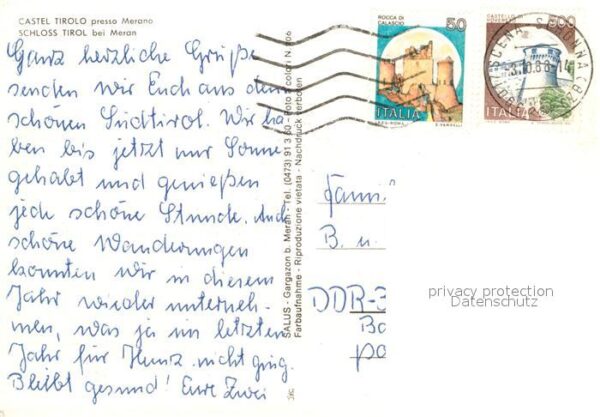 CASTEL TIROLO presso Merano
SCHLOSS TIROL bei Meran
Ganz herzliche Grüße
senden wir Euch aus dem
schönen Südtirol. Wir ha-
ben bis jetzt nur Sonne
gehabt und genießen
jede schöne Stunde. Auch
schöne Wanderungen
konnten wir in diesem
Jahr wieder unterneh-
men, was ja im letzten
Jahr für Heinz nicht ging.
Bleibt gesund! Eure Zwei
SALUS - Gargazon b. Meran - Tel. (0473) 91 3 60 - Foto a colori N 106
Farbaufnahme - Riproduzione vietata - Nachdruck verboten
ROCCA DI
CALASCIO
50
ITALIA
CASTELLO DI
500
ITALIA
SCENA
Fami
B. u.
DDR-3
privacy protection
Datenschutz